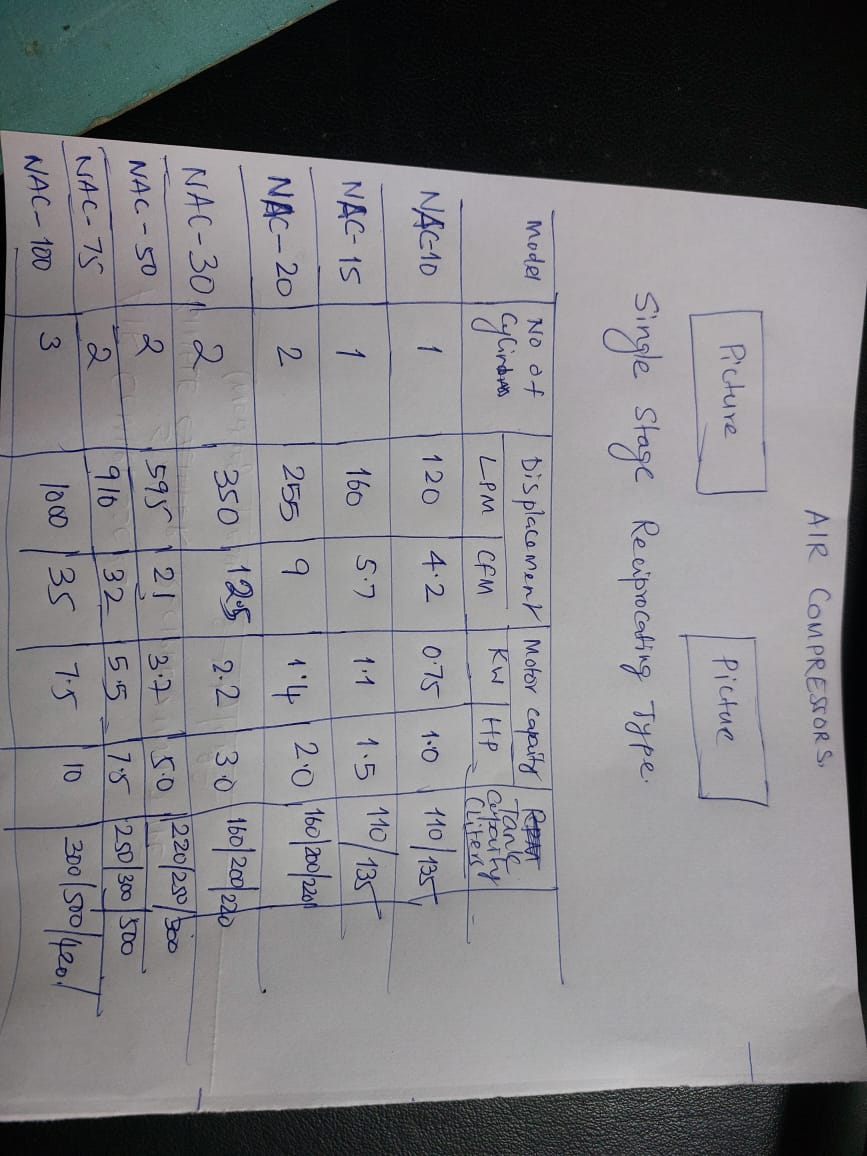 AIR COMPRESSORS.
Picture Picture
Single Stage Reciprocating Type.
Model No. of Cylinders Displacement Motor Capaity Tank Capaity (Liters)
LPM CFM KW HP
NAC-10 1 120 4.2 0.75 1.0 110/135
NAC-15 1 160 5.7 1.1 1.5 110/135
NAC-20 2 255 9 1.4 2.0 160/200/220
NAC-30 2 350 12.5 2.2 3.0 160/200/220
NAC-50 2 595 21 3.7 5.0 220/250/300
NAC-75 2 910 32 5.5 7.5 250/300/500
NAC-100 3 1000 35 7.5 10 300/500/420